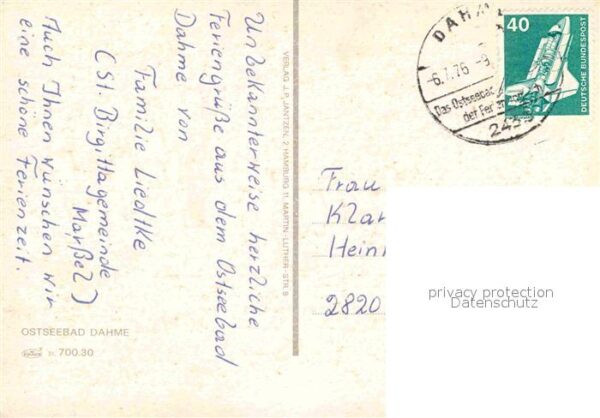 Unbekannterweise herzliche
Feriengrüße aus dem Ostseebad
Dahme von
Familie Liedtke
(St. Birgittagemeinde
Marßel)
Auch Ihnen wünschen wir
eine schöne Ferienzeit.
OSTSEEBAD DAHME
700.30
VERLAG J.P. JANTZEN, 2 HAMBURG 11, MARTIN-LUTHER-STR. 9
DAHM
-6.7.76-9
Das Ostseebad
der Ferien
2435
40
DEUTSCHE BUNDESPOST
Frau
Klar
Hein
2820
privacy protection
Datenschutz